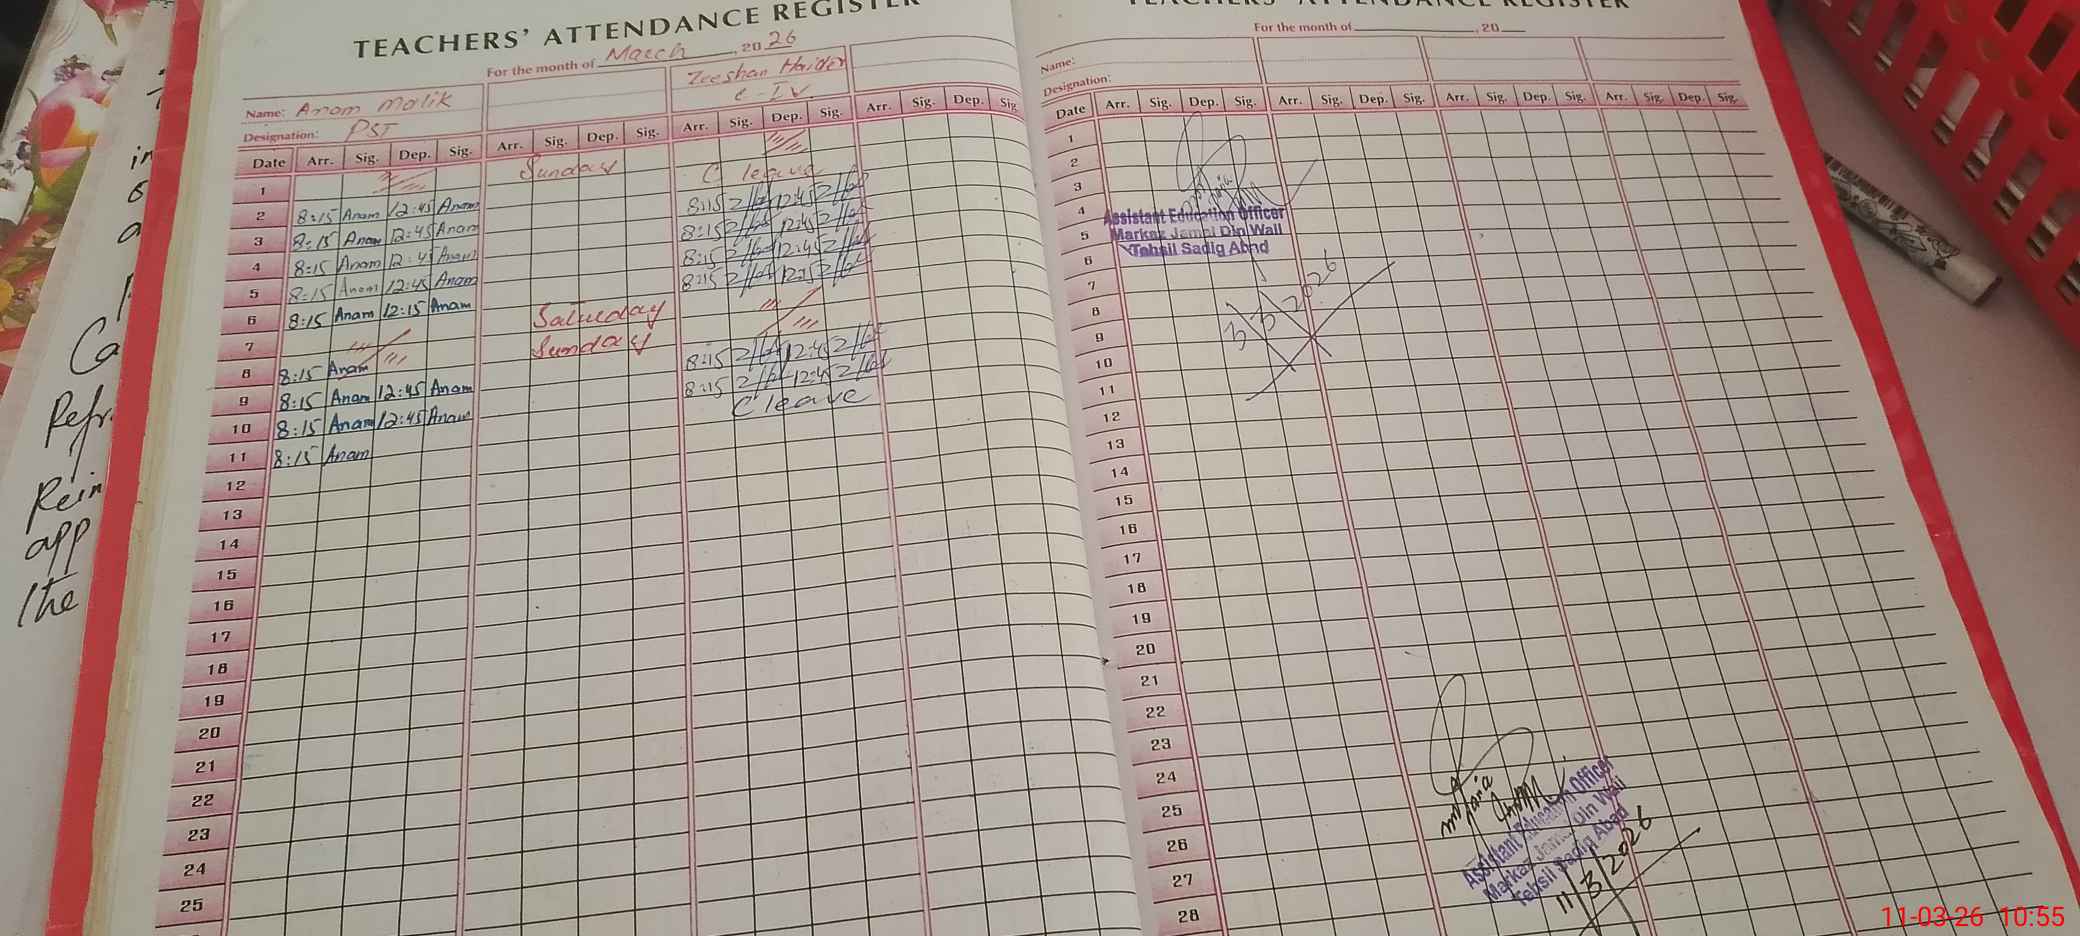 TEACHERS' ATTENDANCE REGISTER
For the month of March, 2026
Name: Anam Malik
Zeeshan Haider
C-IV
Designation: PST
Date Arr. Sig. Dep. Sig. Arr. Sig. Dep. Sig. Arr. Sig. Dep. Sig. Arr. Sig. Dep. Sig.
1 Sunday
2 8:15 Anam 12:45 Anam C leave
3 8:15 Anam 12:45 Anam 8:15 12:45
4 8:15 Anam 12:45 Anam 8:15 12:45
5 8:15 Anam 12:45 Anam 8:15 12:45
6 8:15 Anam 12:15 Anam 8:15 12:15
7 Saturday
8 8:15 Anam Sunday
9 8:15 Anam 12:45 Anam 8:15 12:45
10 8:15 Anam 12:45 Anam 8:15 12:45
11 8:15 Anam C leave
12
13
14
15
16
17
18
19
20
21
22
23
24
25
TEACHERS' ATTENDANCE REGISTER
For the month of , 20
Name:
Designation:
Date Arr. Sig. Dep. Sig. Arr. Sig. Dep. Sig. Arr. Sig. Dep. Sig. Arr. Sig. Dep. Sig.
1
2
3
4
5
6
7
8
9
10
11
12
13
14
15
16
17
18
19
20
21
22
23
24
25
26
27
28
Assistant Education Officer
Markaz Jamal Din Wali
Tehsil Sadiq Abad
3/3/2026
Maria
Assistant Education Officer
Markaz Jamal Din Wali
Tehsil Sadiq Abad
11/3/2026
Refr
Rein
app
the
11-03-26 10:55